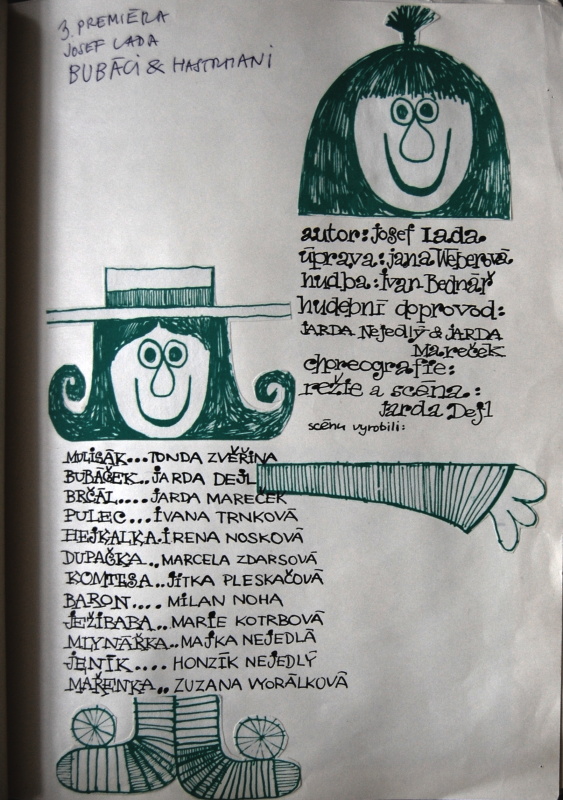 3. PREMIÉRA
JOSEF LADA
BUBÁCI & HASTRMANI
autor: josef Lada
úprava: jana Weberová
hudba: ivan Bednář
hudební doprovod:
jARDA Nejedlý & jARDA
Mareček
choreografie:
režie a scéna:
jarda Dejl
scénu vyrobili:
MULISÁK... TONDA ZVĚŘINA
BUBÁČEK... jARDA DEJL
BRČÁL.... jARDA MAREČEK
PULEC... iVANA TRNKOVÁ
HEJKALKA. iRENA NOSKOVÁ
DUPAČKA.. MARCELA ZDARSOVÁ
KOMTESA.. jITKA PLESKAČOVÁ
BARON.... MiLAN NOHA
jEŽiBABA.. MARiE KOTRBOVÁ
MLYNÁŘKA.. MAjKA NEjEDLÁ
jENÍK.... HONZÍK NEjEDLÝ
MAŘENKA.. ZUZANA VYORÁLKOVÁ